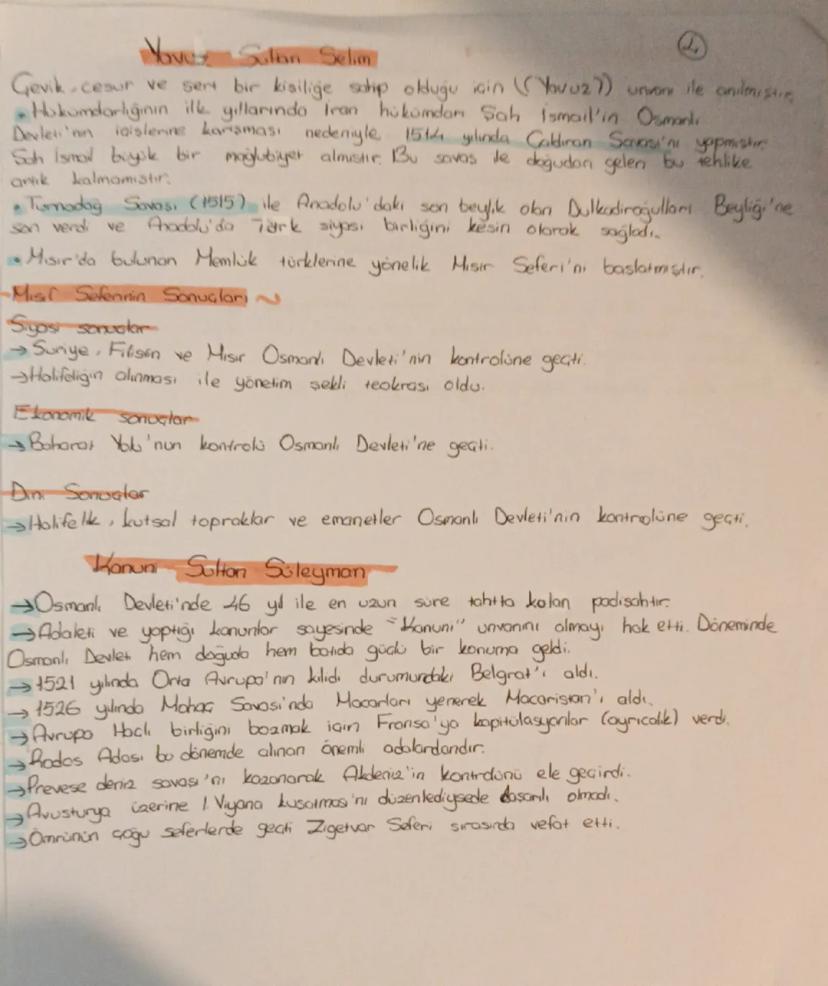 Yavuz Sultan Selim
2.
Çevik, cesur ve sert bir kişiliğe sahip olduğu için ((Yavuz)) unvanı ile anılmıştır.
• Hükümdarlığının ilk yıllarında İran hükümdarı Şah İsmail'in Osmanlı
Devleti'nin içişlerine karışması nedeniyle 1514 yılında Çaldıran Savaşı'nı yapmıştır.
Şah İsmail büyük bir mağlubiyet almıştır. Bu savaş ile doğudan gelen bu tehlike
artık kalmamıştır.
• Turnadağ Savaşı (1515) ile Anadolu'daki son beylik olan Dulkadiroğulları Beyliği'ne
son verdi ve Anadolu'da Türk siyasi birliğini kesin olarak sağladı.
• Mısır'da bulunan Memlük türklerine yönelik Mısır Seferi'ni başlatmıştır.
Mısır Seferinin Sonuçları ~
Siyasi sonuçlar
→ Suriye, Filistin ve Mısır Osmanlı Devleti'nin kontrolüne geçti.
→ Halifeliğin alınması ile yönetim şekli teokrasi oldu.
Ekonomik sonuçlar
→ Baharat Yolu'nun kontrolü Osmanlı Devleti'ne geçti.
Dini Sonuçlar
→ Halifelik, kutsal topraklar ve emanetler Osmanlı Devleti'nin kontrolüne geçti.
Kanuni Sultan Süleyman
→ Osmanlı Devleti'nde 46 yıl ile en uzun süre tahtta kalan padişahtır.
→ Adaleti ve yaptığı kanunlar sayesinde "Kanuni" unvanını almayı hak etti. Döneminde
Osmanlı Devleti hem doğuda hem batıda güçlü bir konuma geldi.
→ 1521 yılında Orta Avrupa'nın kilidi durumundaki Belgrat'ı aldı.
→ 1526 yılında Mohaç Savaşı'nda Macarları yenerek Macaristan'ı aldı.
→ Avrupa Haçlı birliğini bozmak için Fransa'ya kapitülasyonlar (ayrıcalık) verdi.
→ Rodos Adası bu dönemde alınan önemli adalardandır.
→ Preveze deniz savaşı'nı kazanarak Akdeniz'in kontrolünü ele geçirdi.
→ Avusturya üzerine 1. Viyana kuşatması'nı düzenlediysede başarılı olmadı.
→ Ömrünün çoğu seferlerde geçti Zigetvar Seferi sırasında vefat etti.